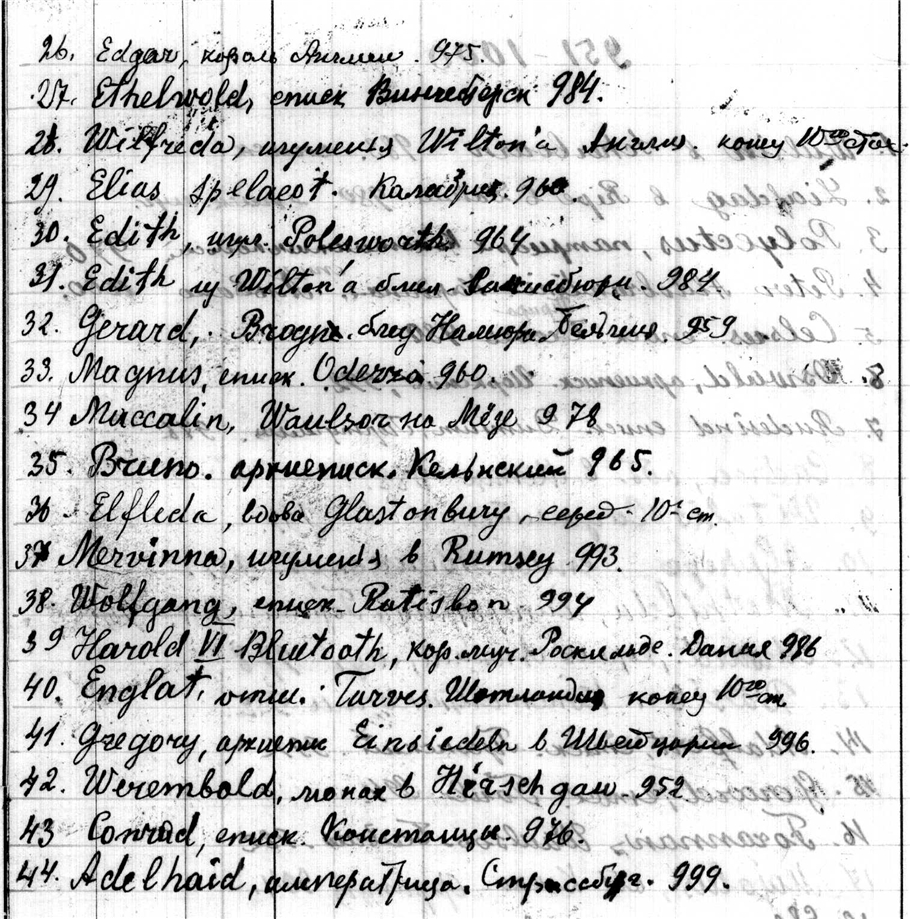 26. Edgar, король Англии. 975.
27. Ethelwold, еписк Винчестерск 984.
28. Wilfreda, игуменья Wilton'a Англия. концу 10го стол.
29. Elias Spelaeot. Калабрия. 960
30. Edith, игум. Polesworth 964
31. Edith из Wilton'a близ Салисбюри. 984
32. Gerard, Brogne. близ Намюра Бельгия 959
33. Magnus, еписк. Oderzo 960.
34 Maccalin, Waulsor на Мёзе 978
35. Bruno. архиеписк. Кельнский 965.
36 Elfleda, вдова Glastonbury, серед. 10го ст.
37 Mervinna, игуменья в Rumsey 993.
38. Wolfgang, еписк. Ratisbon 994
39 Harold VI Bluetooth, кор. муч. Роскильде. Дания 986
40. Englat, отш. Tarves. Шотландия концу 10го ст.
41. Gregory, архиеписк Einsiedeln в Швейцарии 996.
42. Werembold, монах в Hirschgau. 952
43 Conrad, еписк. Констанцы. 976.
44. Adelhaid, императрица. Страссбург. 999.